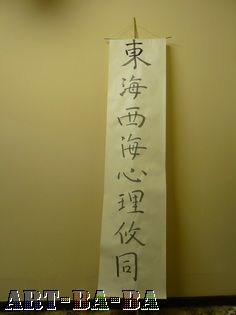 東海西海心理攸同
ART-BA-BA